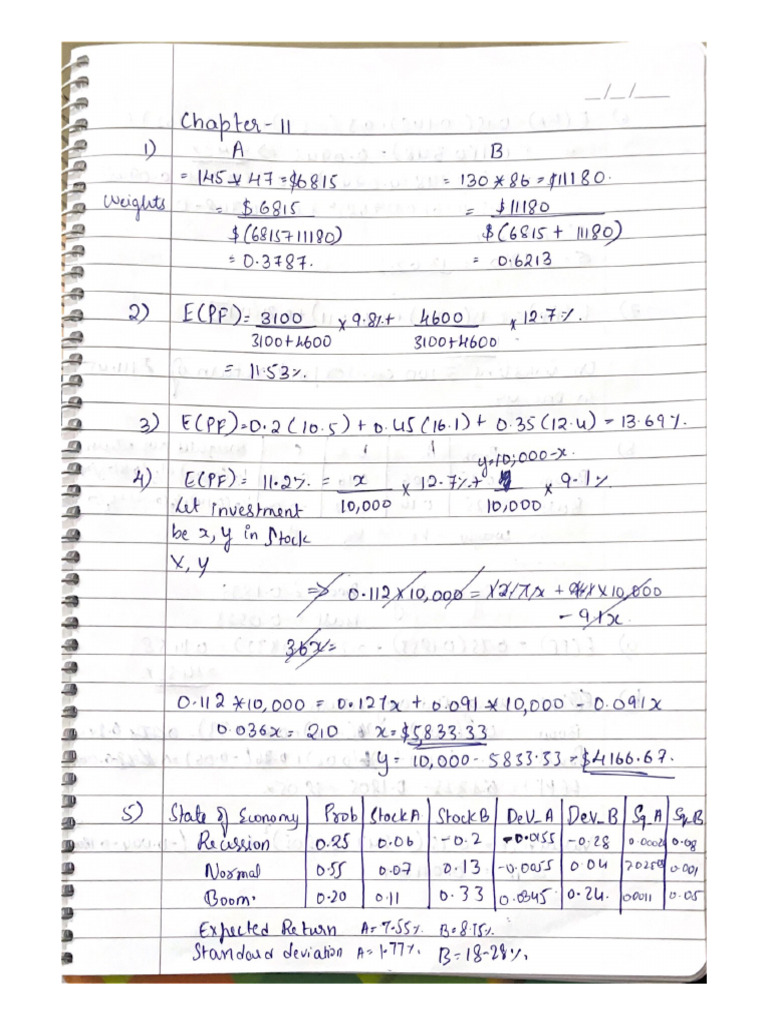 _/_/__
Chapter-11
1) A B
= 145 * 47 = $6815 = 130 * 86 = $11180.
Weights = $6815 / $(6815+11180) = $11180 / $(6815 + 11180)
= 0.3787. = 0.6213
2) E(PF) = 3100 / 3100+4600 x 9.8% + 4600 / 3100+4600 x 12.7%.
= 11.53%.
3) E(PF) = 0.2(10.5) + 0.45(16.1) + 0.35(12.4) = 13.69%.
y=10,000-x.
4) E(PF) = 11.2% = x / 10,000 x 12.7% + / 10,000 x 9.1%
Let investment
be x, y in Stock
X, y
=> 0.112 x 10,000 =
- 9.1x.
36x =
0.112 * 10,000 = 0.127x + 0.091 * 10,000 - 0.091x
0.036x = 210 x = $5,833.33
y = 10,000 - 5833.33 = $4166.67.
5) State of Economy Prob Stock A Stock B DeV_A Dev_B Sq_A Sq_B
Recussion 0.25 0.06 -0.2 -0.0155 -0.28 0.0002 0.08
Normal 0.55 0.07 0.13 -0.0055 0.04 0.001
Boom. 0.20 0.11 0.33 0.0345 0.24. 0.0011 0.05
Expected Return A = 7.55% B = 8.15%.
Standard deviation A = 1.77%. B = 18.28%.